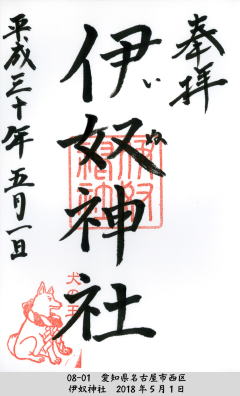 奉拝
伊奴神社
いぬ
平成三十年五月一日
伊奴神社
犬の王
08-01　愛知県名古屋市西区
伊奴神社　2018年5月1日